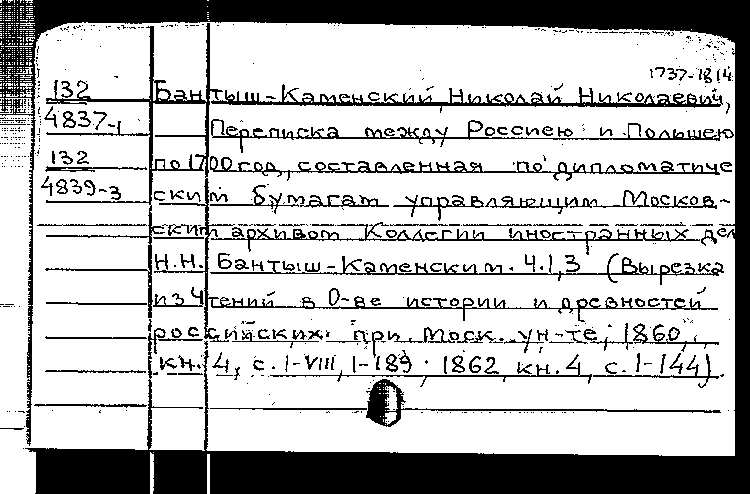 1737-1814
132 Бантыш-Каменский, Николай Николаевич,
4837-1 Переписка между Россиею и Польшею
132 по 1700 год, составленная по дипломатиче
4839-3 ским бумагам управляющим Москов-
ским архивом Коллегии иностранных дел
Н.Н. Бантыш-Каменским. Ч.1,3 (Вырезка
из Чтений в О-ве истории и древностей
российских при Моск. ун-те, 1860,
кн. 4, с. I-VIII, 1-189; 1862, кн. 4, с. 1-144).